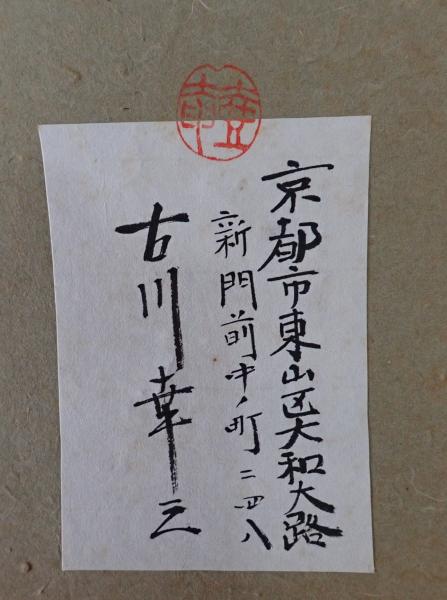 京都市東山区大和大路
新門前中ノ町二四八
古川幸三